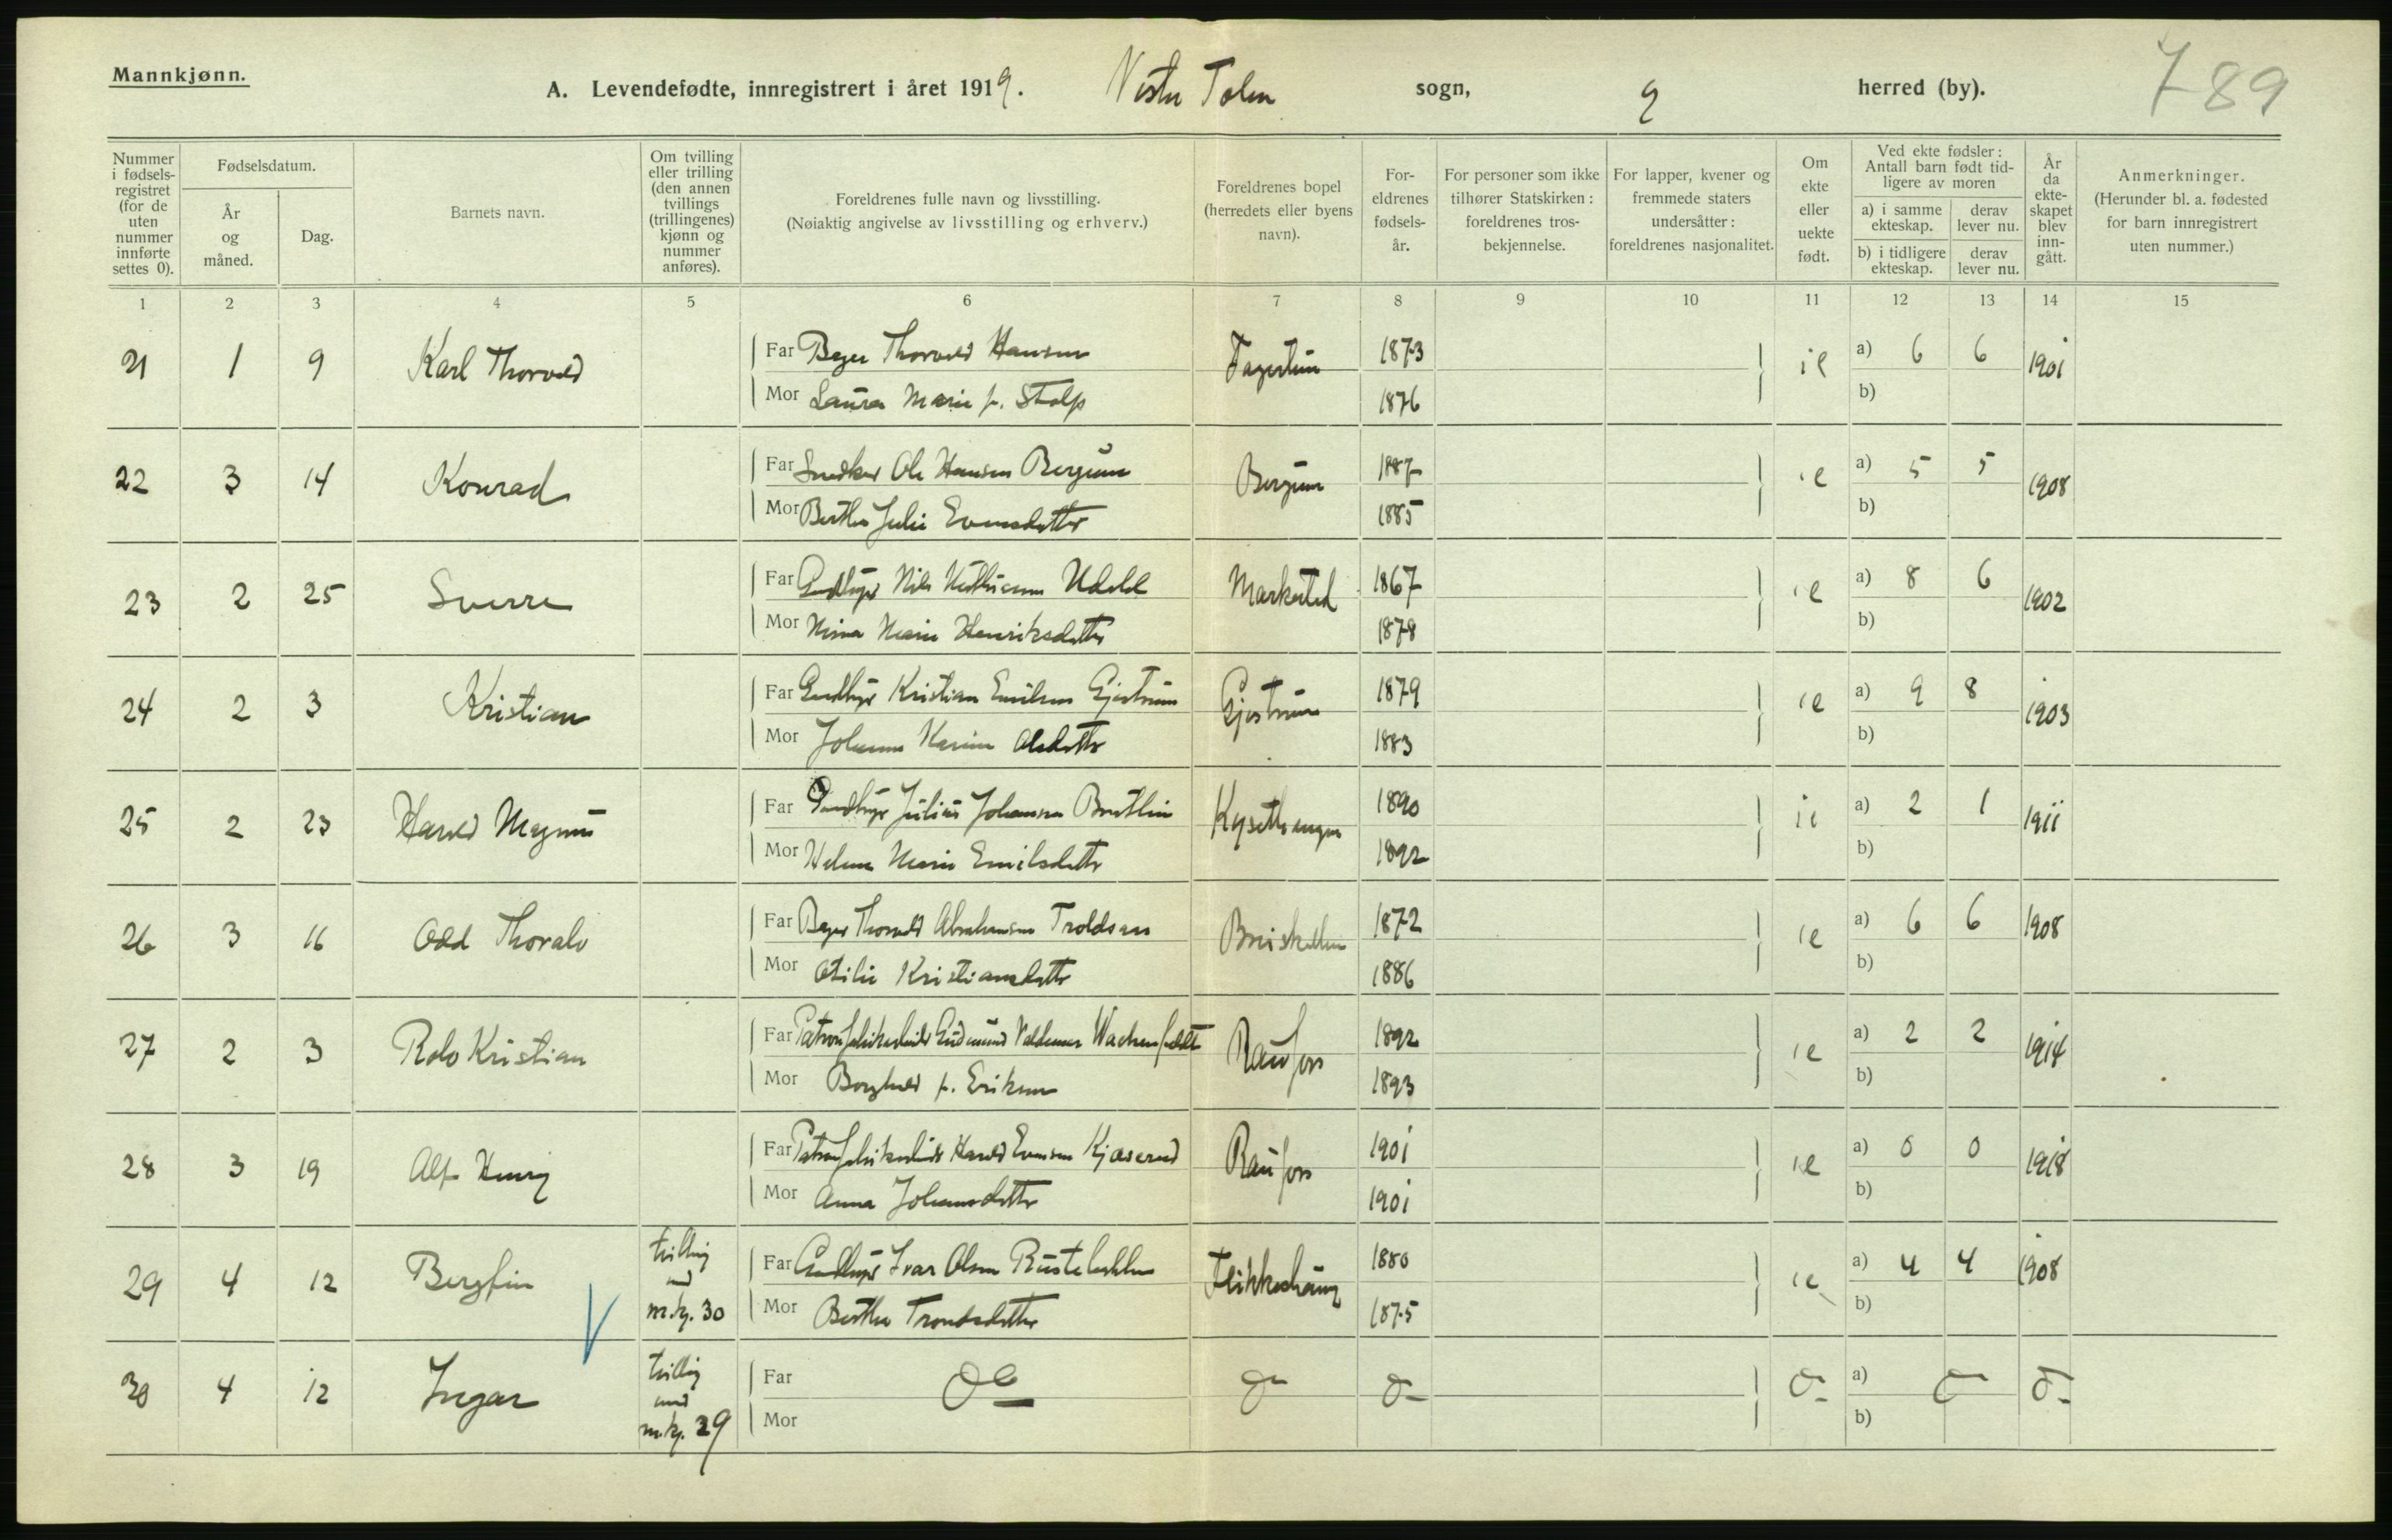 Mannkjønn.
A. Levendefødte, innregistrert i året 1919. Vestre Toten sogn, herred (by).
789
Nummer i fødselsregistret (for de uten nummer innførte settes 0).
Fødselsdatum.
År og måned.
Dag.
Barnets navn.
Om tvilling eller trilling (den annen tvillings (trillingenes) kjønn og nummer anføres).
Foreldrenes fulle navn og livsstilling.
(Nøiaktig angivelse av livsstilling og erhverv.)
Foreldrenes bopel (herredets eller byens navn).
Foreldrenes fødselsår.
For personer som ikke tilhører Statskirken: foreldrenes trosbekjennelse.
For lapper, kvener og fremmede staters undersåtter: foreldrenes nasjonalitet.
Om ekte eller uekte født.
Ved ekte fødsler: Antall barn født tidligere av moren
a) i samme ekteskap.
derav lever nu.
b) i tidligere ekteskap.
derav lever nu.
År da ekteskapet blev inngått.
Anmerkninger.
(Herunder bl. a. fødested for barn innregistrert uten nummer.)
1 2 3 4 5 6 7 8 9 10 11 12 13 14 15
21 1 9 Karl Thorvald Far Thorvald Hansen 1873 a) 6 6 1901
Mor Laura Marie f. Stolp 1876 b)
22 3 14 Konrad Far Snedker Ole Hansen Bergum Bergum 1887 ie a) 5 5 1908
Mor Berthe Julie Evensdatter 1885 b)
23 2 25 Sverre Far Nils 1867 ie a) 8 6 1902
Mor Marie Henriksdatter 1878 b)
24 2 3 Kristian Far Kristian Emilsen Gjestrum Gjestrum 1879 ie a) 9 8 1903
Mor Johanne Karine Olsdatter 1883 b)
25 2 23 Harald Magnus Far Julius Johansen 1890 a) 2 1 1911
Mor Marie Emilsdatter 1892 b)
26 3 16 Odd Thoralv Far Thorvald Abrahamsen 1872 ie a) 6 6 1908
Mor Otilie Kristiansdatter 1886 b)
27 2 3 Rolv Kristian Far Valdemar Wachenfeldt Raufoss 1892 ie a) 2 2 1914
Mor Borghild f. Eriksen 1893 b)
28 3 19 Alf Henry Far Harald Evensen Kjøserud Raufoss 1901 ie a) 0 0 1918
Mor Anna Johansdatter 1901 b)
29 4 12 Bergfin tvilling med m.kj. 30 Far Ivar Olsen 1880 ie a) 4 4 1908
Mor Berthe Trondsdatter 1875 b)
30 4 12 Ingar tvilling med m.kj. 29 Far a)
Mor b)